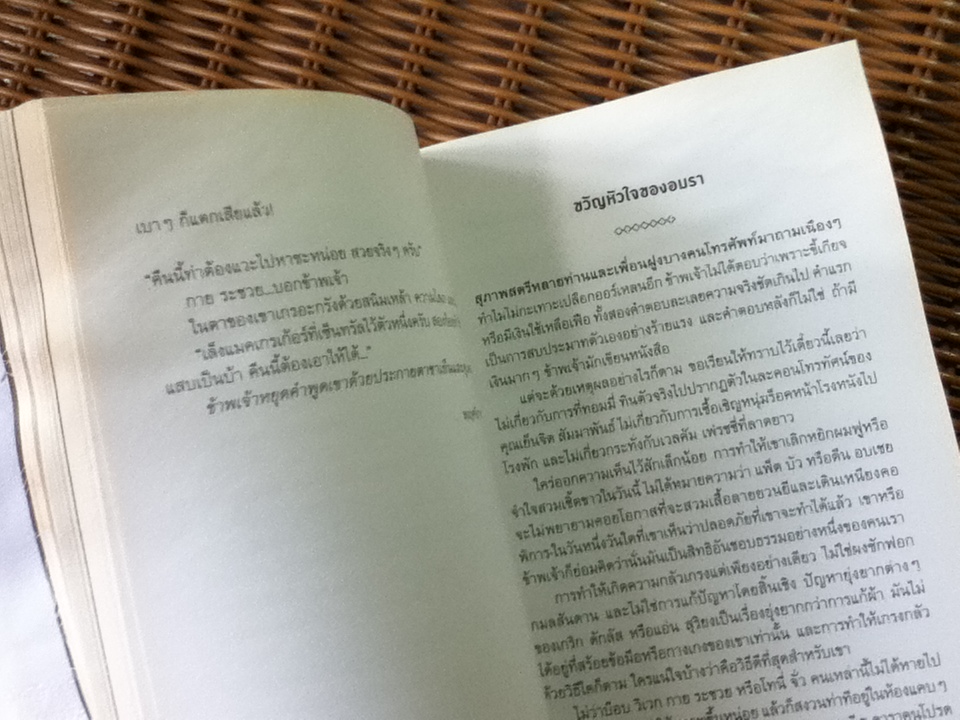 เบาๆ ก็แตกเสียแล้ว!
"คืนนี้ท่าต้องแวะไปหาซะหน่อย สวยจริงๆ ครับ"
กาย ระชวย...บอกข้าพเจ้า
ในตาของเขาเกรอะกรังด้วยสนิมเหล้า
"เล็งแมคเกรเกอร์ที่เซ็นทรัลไว้ตัวหนึ่งครับ
แสบเป็นบ้า คืนนี้ต้องเอาให้ได้..."
ข้าพเจ้าหยุดคำพูดเขาด้วยประกายตาชาเย็น
ขวัญหัวใจของอมรา
สุภาพสตรีหลายท่านและเพื่อนฝูงบางคนโทรศัพท์มาถามเนืองๆ
ทำไมไม่กะเทาะเปลือกออร์เหลนอีก ข้าพเจ้าไม่ได้ตอบว่าเพราะขี้เกียจ
หรือมีเงินใช้เหลือเฟือ ทั้งสองคำตอบละเลยความจริงชัดเกินไป คำแรก
เป็นการสบประมาทตัวเองอย่างร้ายแรง และคำตอบหลังก็ไม่ใช่ ถ้ามี
เงินมากๆ ข้าพเจ้ามักเขียนหนังสือ
แต่จะด้วยเหตุผลอย่างไรก็ตาม ขอเรียนให้ทราบไว้เดี๋ยวนี้เลยว่า
ไม่เกี่ยวกับการที่ทอมมี่ ทินตัวจริงไปปรากฏตัวในละคอนโทรทัศน์ของ
คุณเย็นจิต สัมมาพันธ์ ไม่เกี่ยวกับการเชื้อเชิญหนุ่มร็อคหน้าโรงหนังไป
โรงพัก และไม่เกี่ยวกระทั่งกับเวลคัม เฟรชชี่ที่ลาดยาว
ใคร่ออกความเห็นไว้สักเล็กน้อย การทำให้เขาเลิกหยิกผมฟูหรือ
จำใจสวมเชิ้ตขาวในวันนี้ ไม่ได้หมายความว่า แพ็ต บัว หรือตีน อบเชย
จะไม่พยายามคอยโอกาสที่จะสวมเสื้อลายยวนยีและเดินเหนียงคอ
พิการ-ในวันหนึ่งวันใดที่เขาเห็นว่าปลอดภัยที่เขาจะทำได้แล้ว เขาหรือ
ข้าพเจ้าก็ย่อมคิดว่านั่นมันเป็นสิทธิอันชอบธรรมอย่างหนึ่งของคนเรา
การทำให้เกิดความกลัวเกรงแต่เพียงอย่างเดียว ไม่ใช่ผงซักฟอก
กมลสันดาน และไม่ใช่การแก้ปัญหาโดยสิ้นเชิง ปัญหายุ่งยากต่างๆ
ของเกริก ดักลัส หรือแอ่น สุริยงเป็นเรื่องยุ่งยากกว่าการแก้ผ้า มันไม่
ได้อยู่ที่สร้อยข้อมือหรือกางเกงของเขาเท่านั้น และการทำให้เกรงกลัว
ด้วยวิธีใดก็ตาม ใครแน่ใจบ้างว่าคือวิธีดีที่สุดสำหรับเขา
ไม่ว่าบ๊อบ วิเวก กาย ระชวย หรือโทนี่ จั่ว คนเหล่านี้ไม่ได้หายไป
หน่อย แล้วก็สงวนท่าทีอยู่ในห้องแคบๆ